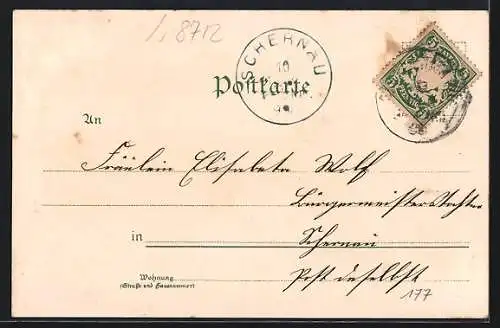 1. 8712
SCHERNAU
10
Postkarte
5
An
Fräulein Elisabeta Wolf
Bürgermeisterstochter
in Schernau
Wohnung
(Straße und Hausnummer)
Post daselbst
177